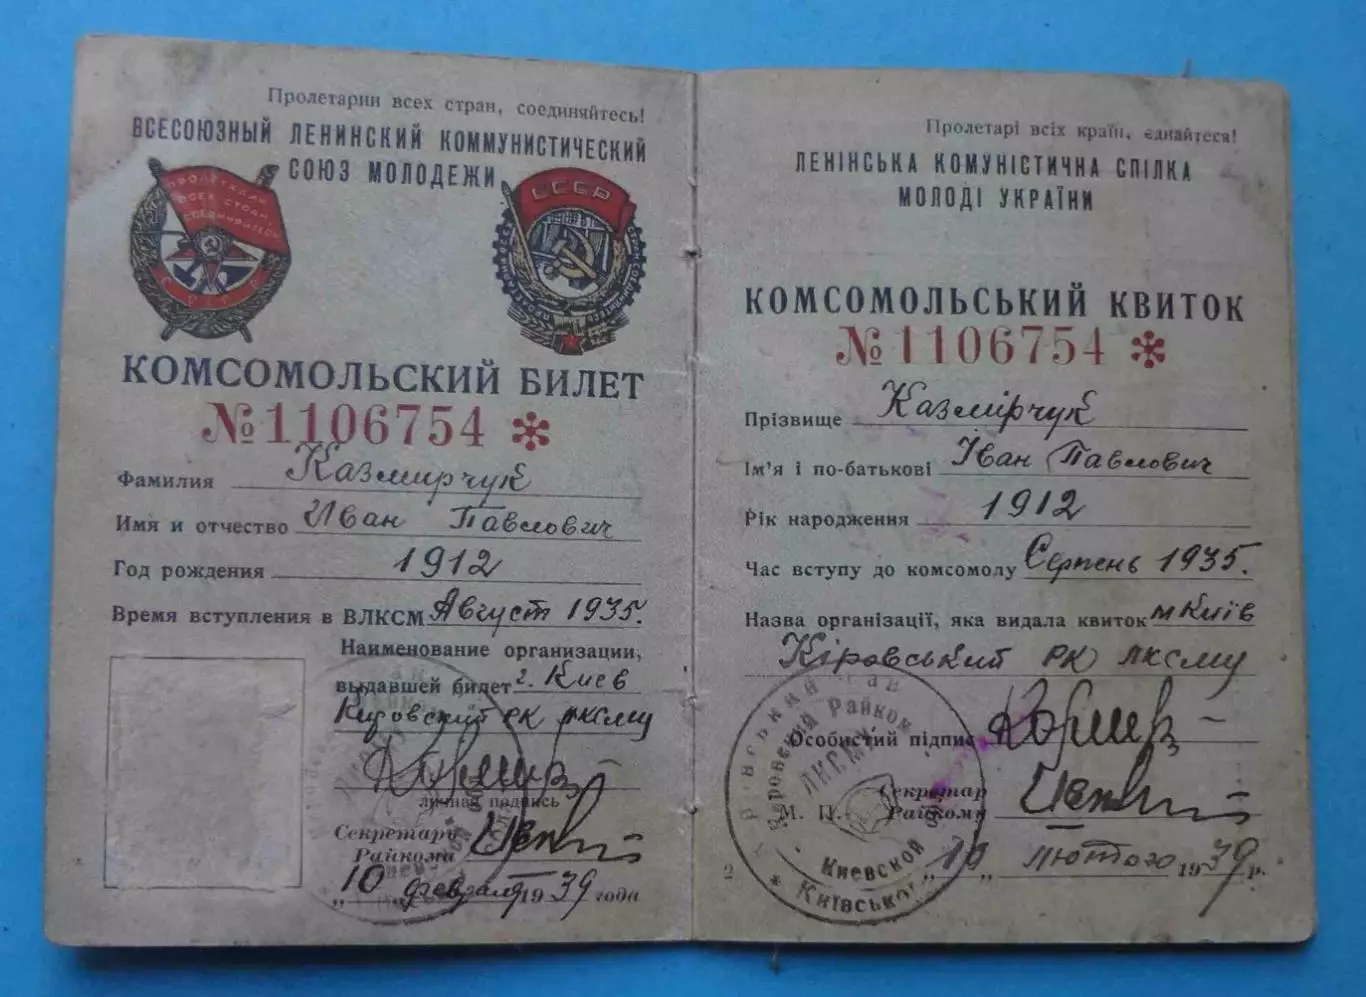 Пролетарии всех стран, соединяйтесь!
ВСЕСОЮЗНЫЙ ЛЕНИНСКИЙ КОММУНИСТИЧЕСКИЙ
СОЮЗ МОЛОДЕЖИ
ПРОЛЕТАРИИ
ВСЕХ СТРАН
СОЕДИНЯЙТЕСЬ
СССР
СССР
КОМСОМОЛЬСКИЙ БИЛЕТ
№1106754 *
Фамилия Казмирчук
Имя и отчество Иван Павлович
Год рождения 1912
Время вступления в ВЛКСМ Август 1935.
Наименование организации,
выдавшей билет г. Киев
Кировский РК ЛКСМУ
личная подпись
Секретарь
Райкома
„10" февраля 1939 года
Пролетарі всіх країн, єднайтеся!
ЛЕНІНСЬКА КОМУНІСТИЧНА СПІЛКА
МОЛОДІ УКРАЇНИ
КОМСОМОЛЬСЬКИЙ КВИТОК
№1106754 *
Прізвище Казмірчук
Ім'я і по-батькові Іван Павлович
Рік народження 1912
Час вступу до комсомолу Серпень 1935.
Назва організації, яка видала квиток м Київ
Кіровський РК ЛКСМУ
Особистий підпис
Секретар
М. П. Райкому
„10" лютого 1939 р.
Кировский Райком
ЛКСМУ
Киевской
Київської
2